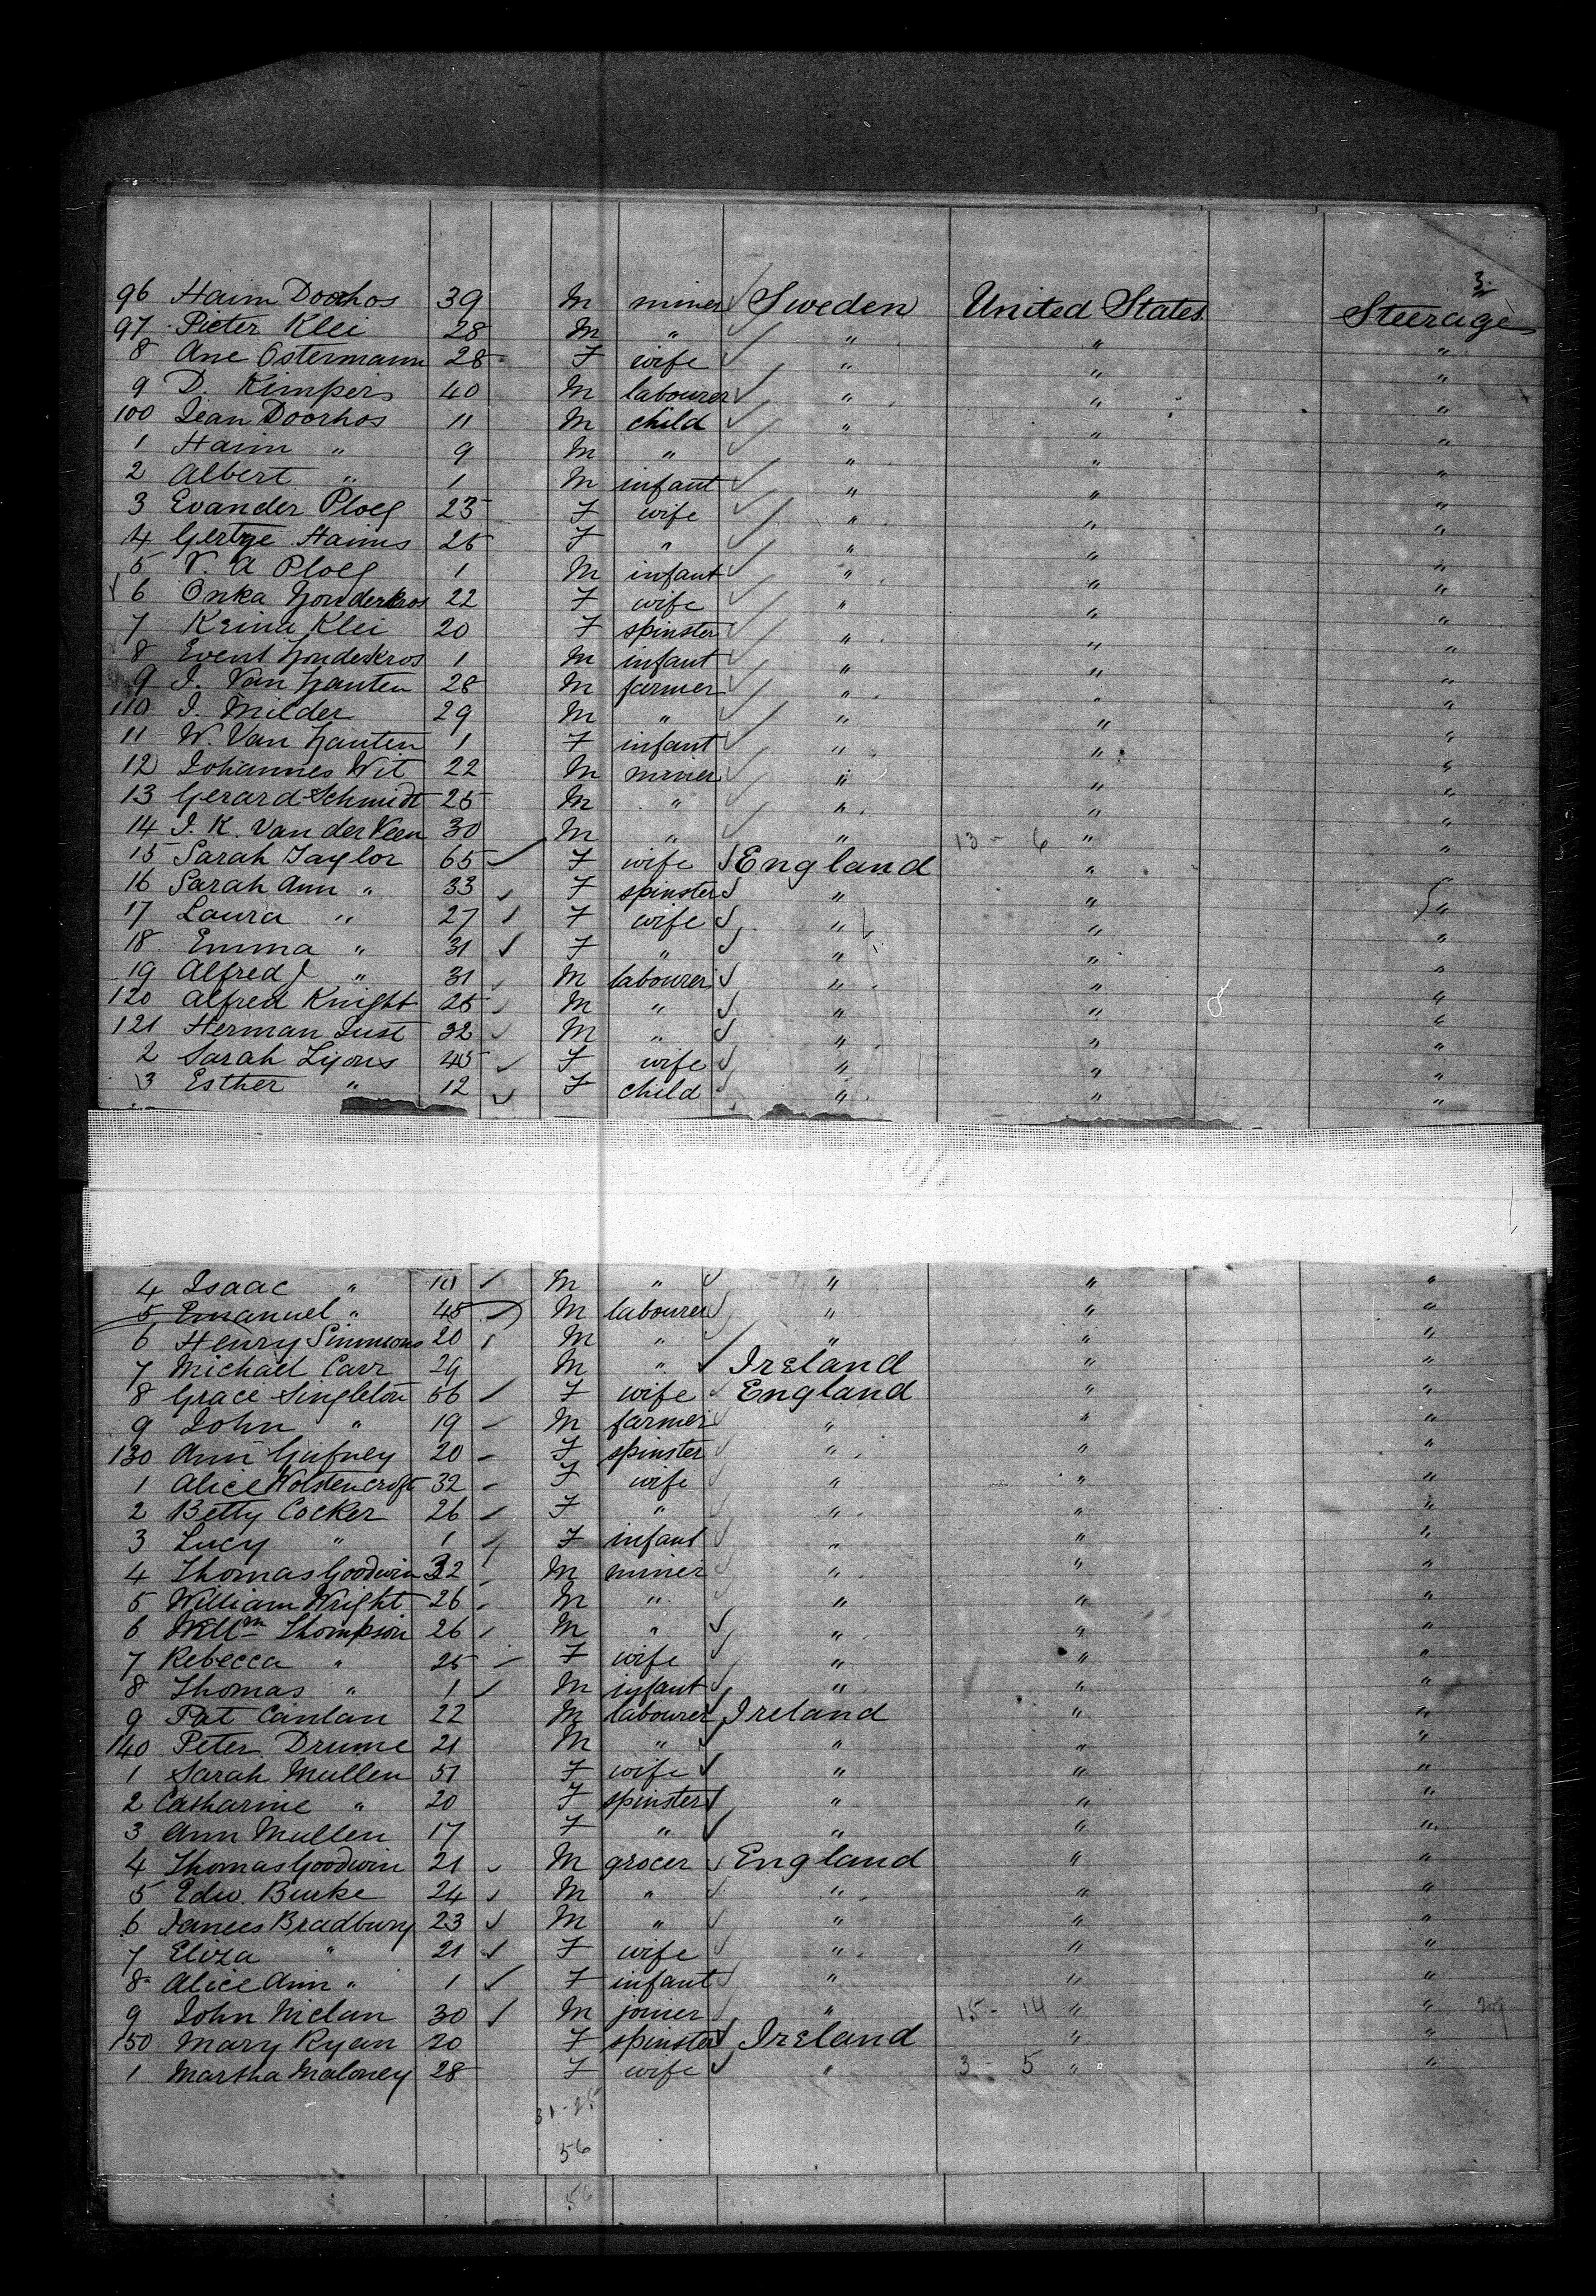 3
96 Haim Doorhos 39 M miner Sweden United States Steerage
97 Pieter Klei 28 M " " " "
8 Ane Ostermann 28 F wife " " "
9 D. Kimpers 40 M labourer " " "
100 Jean Doorhos 11 M child " " "
1 Haim " 9 M " " " "
2 Albert " 1 M infant " " "
3 Evander Ploeg 23 F wife " " "
4 Gertge Haims 25 F " " " "
5 V. A Ploeg 1 M infant " " "
6 Onka 22 F wife " " "
7 Klei 20 F spinster " " "
8 Evert 1 M infant " " "
9 J. Van Zanten 28 M farmer " " "
110 J. Milder 29 M " " " "
11 W. Van Zanten 1 F infant " " "
12 Johannes Wit 22 M miner " " "
13 Gerard Schmidt 25 M " " " "
14 J. K. Van der Veen 30 M " " 13 - 6 " "
15 Sarah Taylor 65 F wife England " "
16 Sarah Ann " 33 F spinster " " "
17 Laura " 27 F wife " " "
18 Emma " 31 F " " " "
19 Alfred J " 31 M labourer " " "
120 Alfred Knight 25 M " " " "
121 Herman Just 32 M " " " "
2 Sarah Lyons 45 F wife " " "
3 Esther " 12 F child " " "
4 Isaac " 10 M " " " "
5 Emanuel " 45 M labourer " " "
6 Henry Simmons 20 M " " " "
7 Michael Carr 29 M " Ireland " "
8 Grace Singleton 56 F wife England " "
9 John " 19 M farmer " " "
130 Ann Gufney 20 F spinster " " "
1 Alice Wolstencroft 32 F wife " " "
2 Betty Cocker 26 F " " " "
3 Lucy " 1 F infant " " "
4 Thomas Goodwin 32 M miner " " "
5 William Wright 26 M " " " "
6 Willm Thompson 26 M " " " "
7 Rebecca " 25 F wife " " "
8 Thomas " 1 M infant " " "
9 Pat Canlan 22 M labourer Ireland " "
140 Peter Drume 21 M " " " "
1 Sarah Mullen 51 F wife " " "
2 Catharine " 20 F spinster " " "
3 Ann Mullen 17 F " " " "
4 Thomas Goodwin 21 M grocer England " "
5 Edw. Burke 24 M " " " "
6 James Bradbury 23 M " " " "
7 Eliza " 21 F wife " " "
8 Alice Ann " 1 F infant " " "
9 John Niclan 30 M joiner " 15 - 14 " " 29
150 Mary Ryan 20 F spinster Ireland " "
1 Martha Maloney 28 F wife " 3 - 5 " "
31-25
56
56